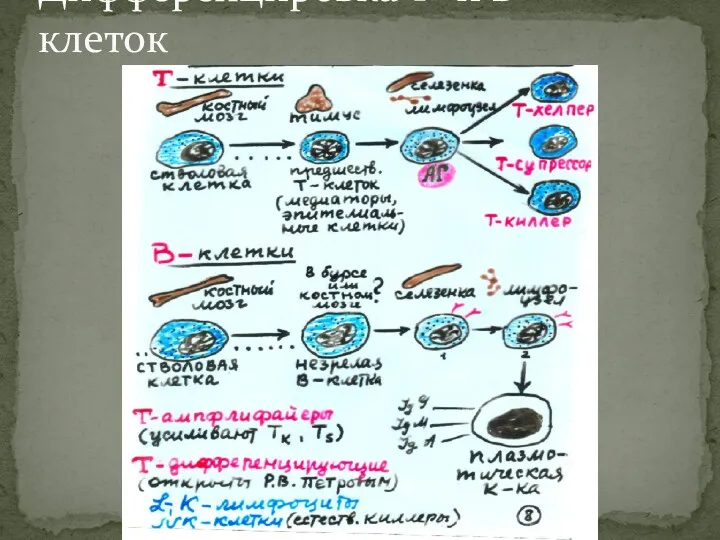 Дифференцировка Т- и В-
клеток
Т-клетки
костный
мозг
тимус
селезенка
лимфоузел
Т-хелпер
стволовая
клетка
предшеств.
Т-клеток
(медиаторы,
эпителиаль-
ные клетки)
АГ
Т-супрессор
Т-киллер
В-клетки
костный
мозг
в бурсе
или
костном
мозге
?
селезенка
лимфо-
узел
стволовая
клетка
незрелая
В-клетка
1
2
Ig G
Ig M
Ig A
плазмо-
тическая
к-ка
Т-амплифайеры
(усиливают Тк, Ts)
Т-дифференцирующие
(открыты Р.В. Петровым)
L-К-лимфоциты
NK-клетки (естеств. киллеры)
8